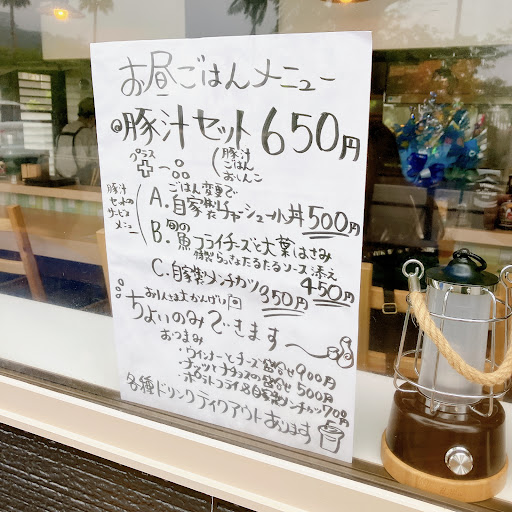 お昼ごはんメニュー
豚汁セット 650円
プラス
豚汁
ごはん
おしんこ
豚汁
セットの
サービス
メニュー
ごはん変更で
A. 自家製チャーシュー丼 500円
B. 旬の
魚フライチーズと大葉はさみ
特製らっきょたるたるソース添え
450円
C. 自家製メンチカツ 350円
ちょいのみできます
おつまみ
・ウインナーとチーズ 900円
500円
ポテトフライ&自家製メンチカツ 700円
各種ドリンクテイクアウトあります